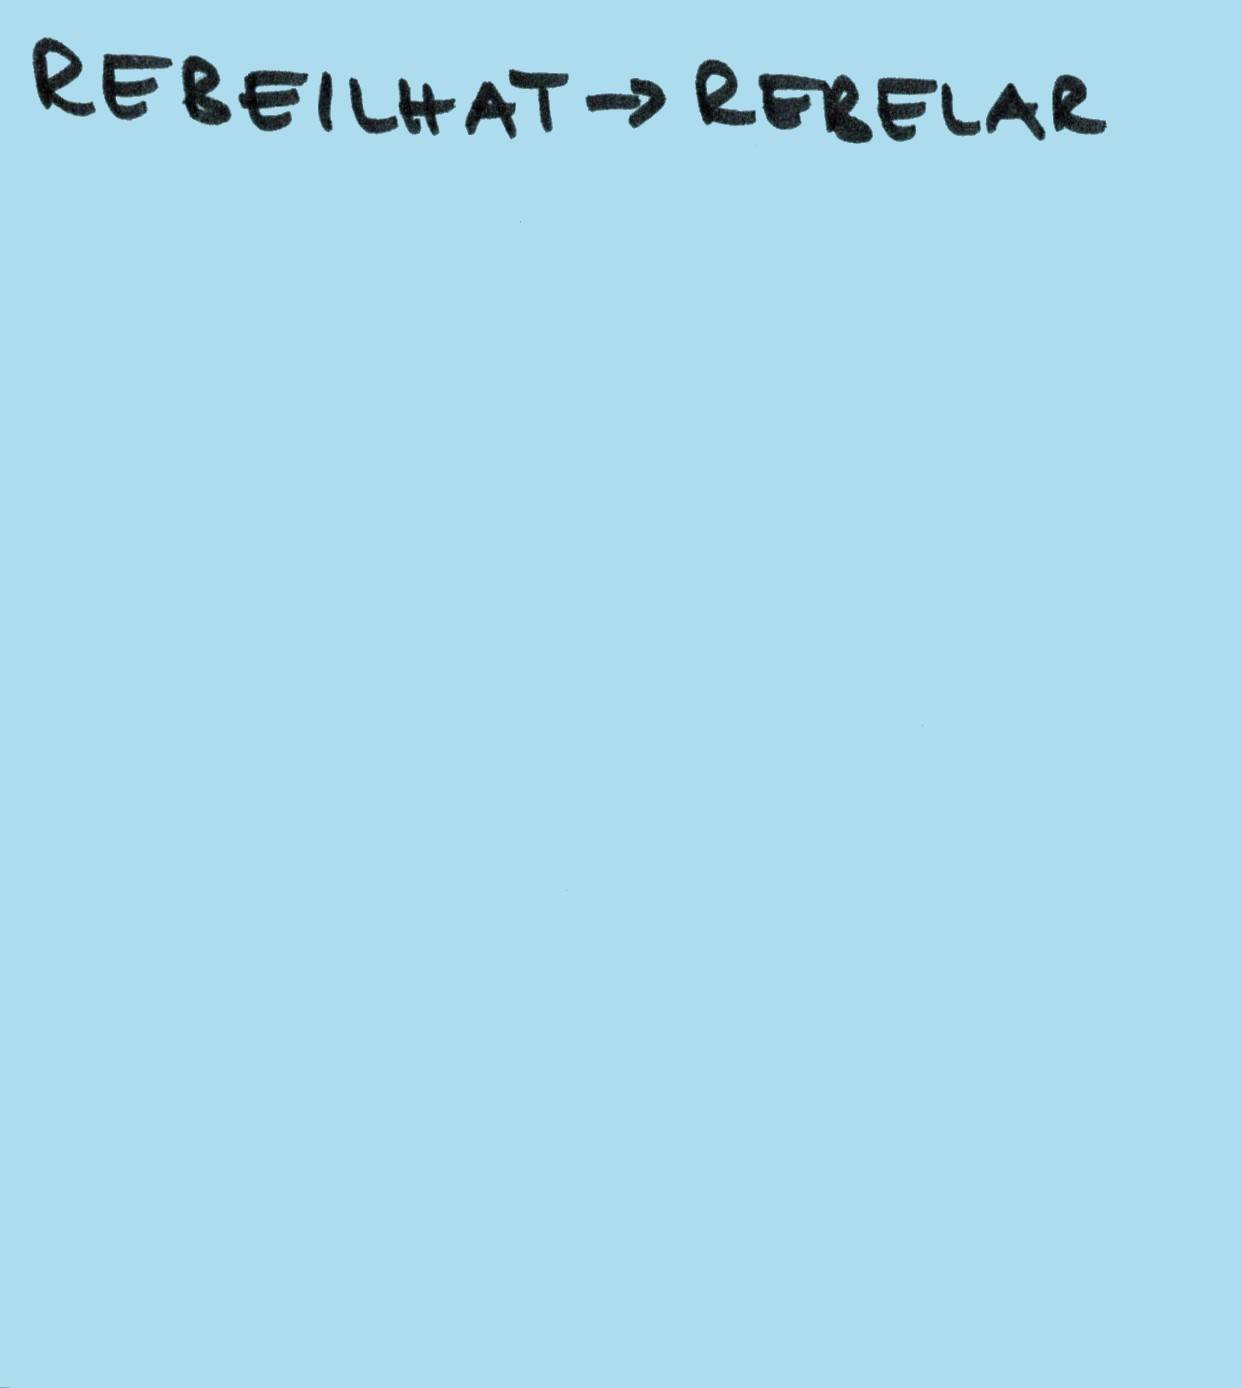 REBEILHAT → REBELAR